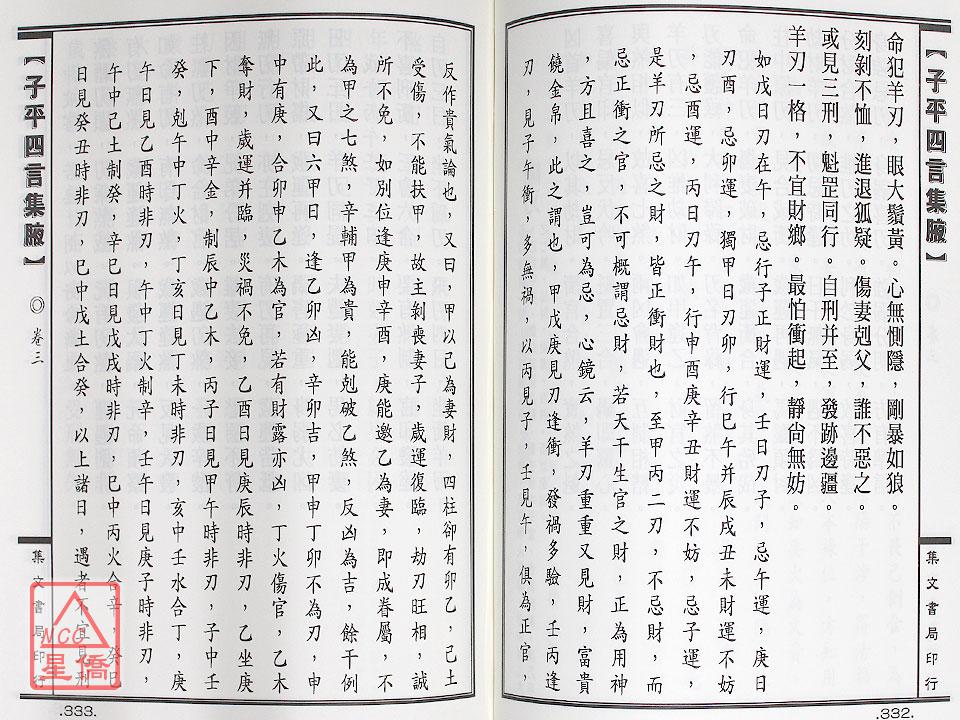 【子平四言集腋】
命犯羊刃，眼大鬚黃。心無惻隱，剛暴如狼。
刻剝不恤，進退狐疑。傷妻剋父，誰不惡之。
或見三刑，魁罡同行。自刑并至，發跡邊疆。
羊刃一格，不宜財鄉。最怕衝起，靜尚無妨。
如戊日刃在午，忌行子正財運，壬日刃子，忌午運，庚日
刃酉，忌卯運，獨甲日刃卯，行巳午并辰戌丑未財運不妨
，忌酉運，丙日刃午，行申酉庚辛丑財運不妨，忌子運，
是羊刃所忌之財，皆正衝財也，至甲丙二刃，不忌財，而
忌正衝之官，不可概謂忌財，若天干生官之財，正為用神
，方且喜之，豈可為忌，心鏡云，羊刃重重又見財，富貴
饒金帛，此之謂也，甲戊庚見刃逢衝，發禍多驗，壬丙逢
刃，見子午衝，多無禍，以丙見子，壬見午，俱為正官，
集文書局印行
.332.
【子平四言集腋】 ◎卷三
反作貴氣論也，又曰，甲以己為妻財，四柱卻有卯乙，己土
受傷，不能扶甲，故主剝喪妻子，歲運復臨，劫刃旺相，誠
所不免，如別位逢庚申辛酉，庚能邀乙為妻，即成眷屬，不
為甲之七煞，辛輔甲為貴，能剋破乙煞，反凶為吉，餘干例
此，又曰六甲日，逢乙卯凶，辛卯吉，甲申丁卯不為刃，申
中有庚，合卯中乙木為官，若有財露亦凶，丁火傷官，乙木
奪財，歲運并臨，災禍不免，乙酉日見庚辰時非刃，乙坐庚
下，酉中辛金，制辰中乙木，丙子日見甲午時非刃，子中壬
癸，剋午中丁火，丁亥日見丁未時非刃，亥中壬水合丁，庚
午日見乙酉時非刃，午中丁火制辛，壬午日見庚子時非刃，
午中己土制癸，辛巳日見戊戌時非刃，巳中丙火合辛，癸巳
日見癸丑時非刃，巳中戊土合癸，以上諸日，遇者不宜見刑
集文書局印行
.333.
NCC
星僑